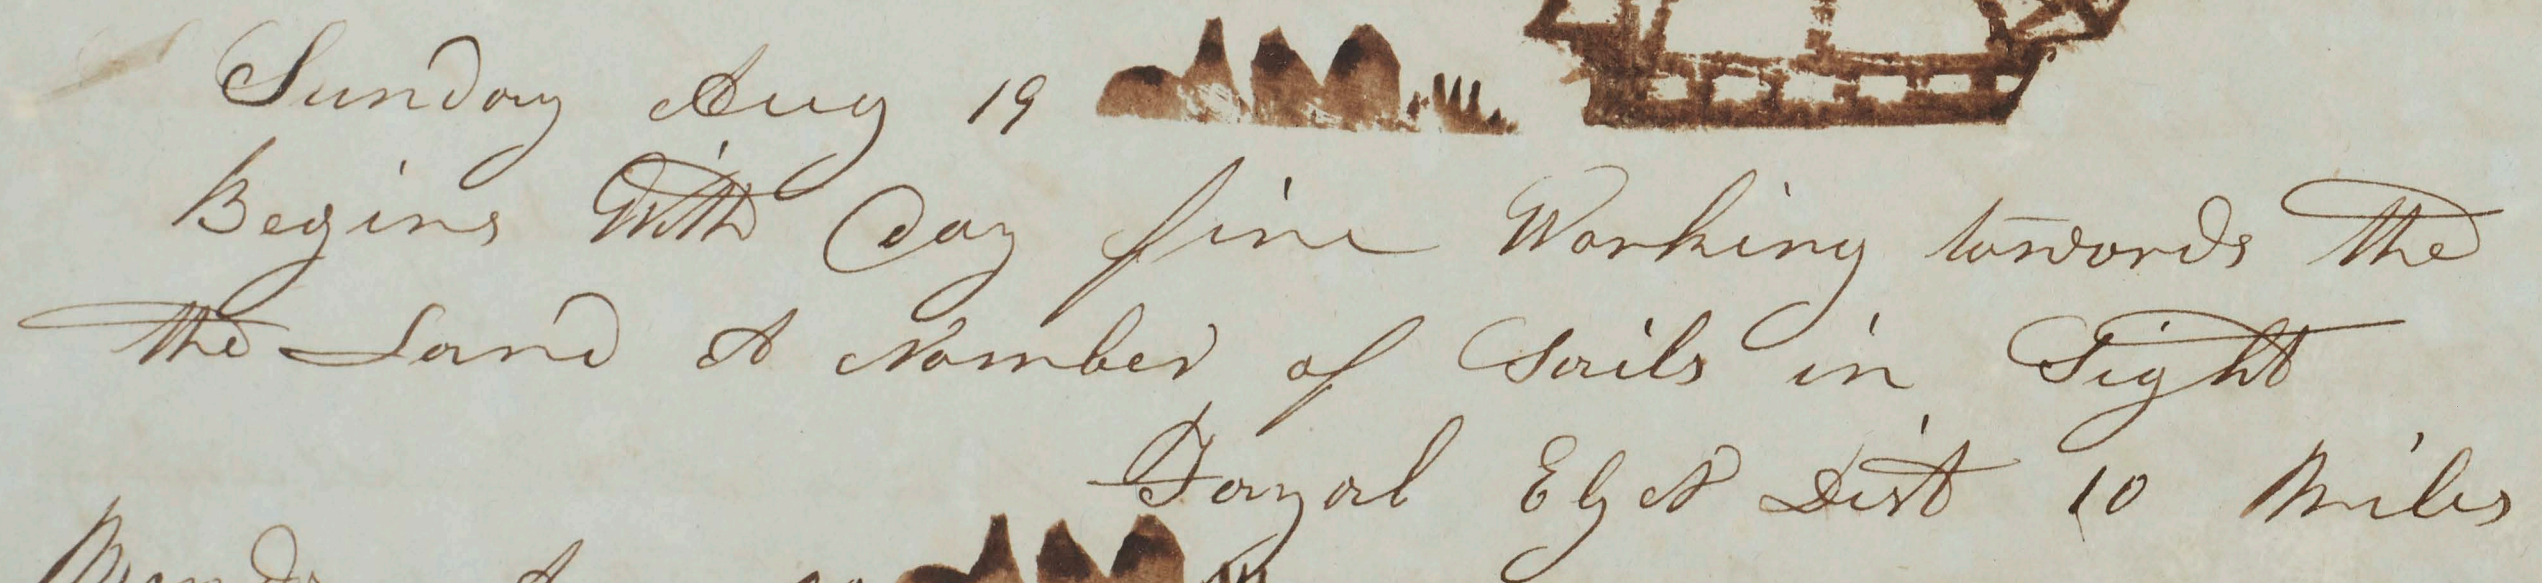 Sunday Aug 19
Begins With Day fine Working towards the
the Land A Nomber of Sails in Sight
Fayal E by N Dist 10 Miles